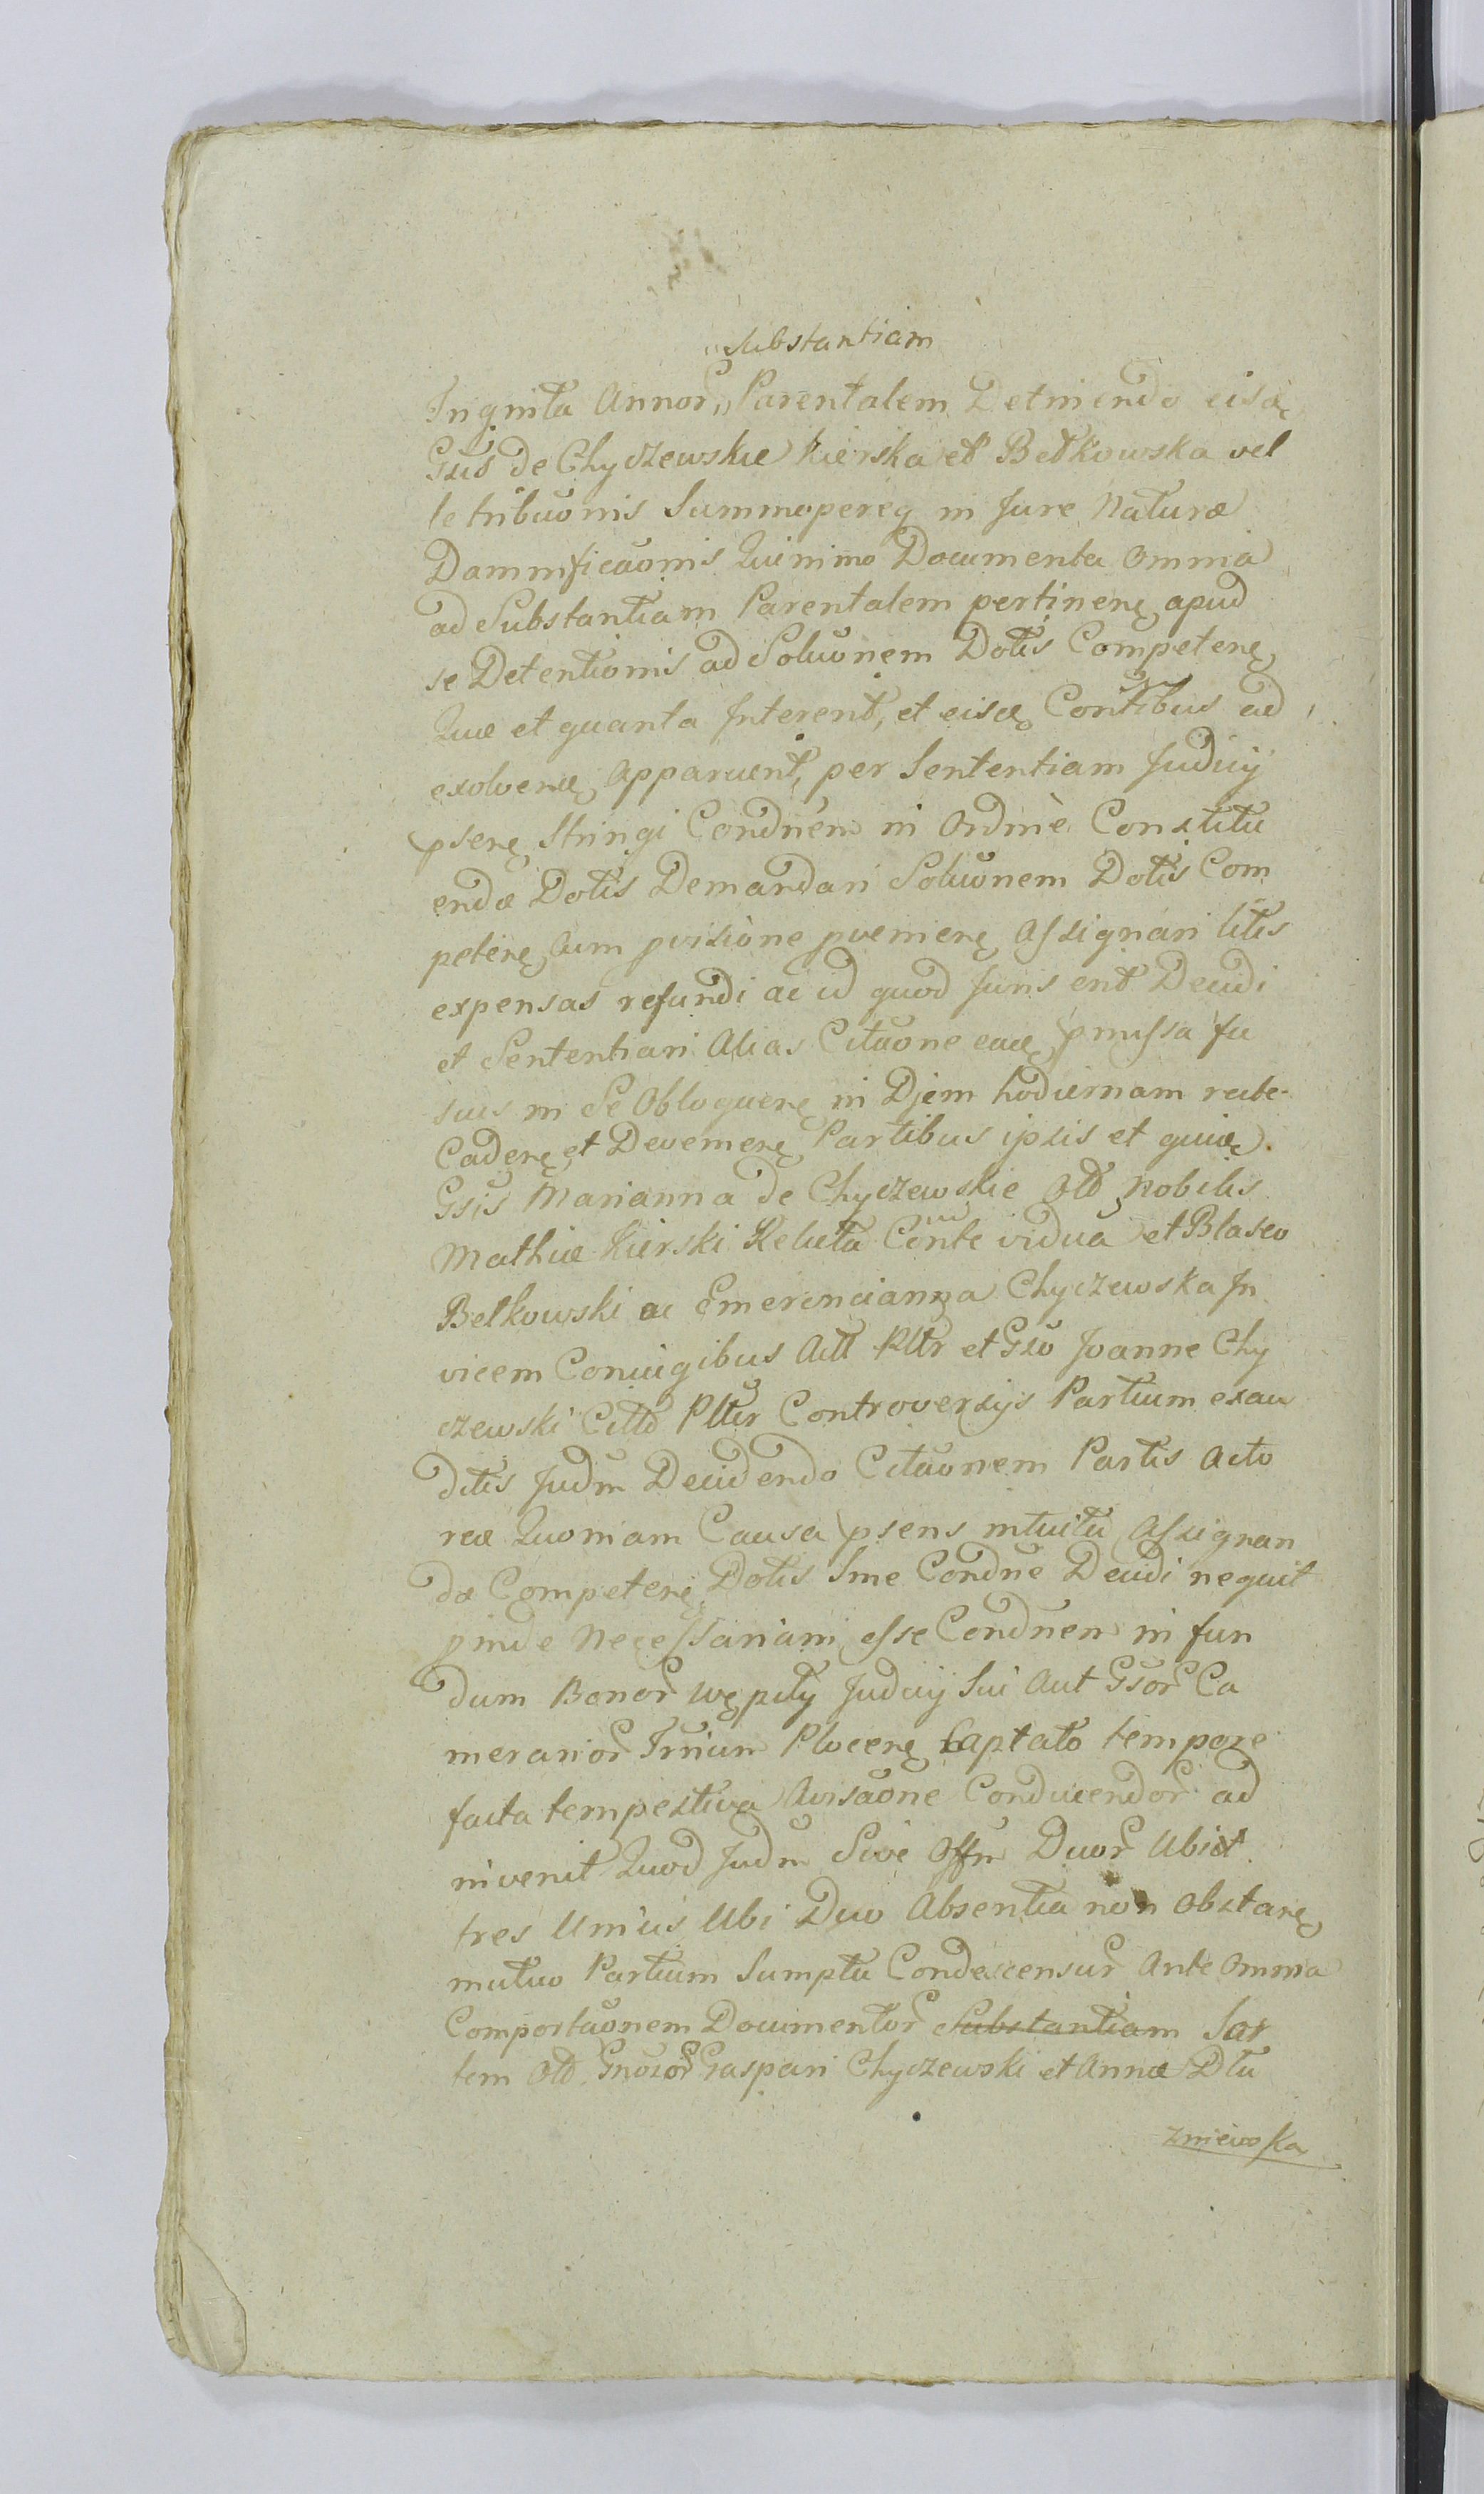 „Substantiam
Inqnita Annor „Parentalem Detinendo eisdę
Gsis de Chyczewskie Kierska et Betkowska vel
le tribuonis Summopereq in Jure Naturæ
Damnificaonis Quinimo Documenta omnia
ad Substantiam Parentalem pertinenę apud
se Detentionis ad Soluonem Dotis Competenę
Quæ et quanta Interent, et eisdę Contibus ad
exolvenę Apparuent, per Sententiam Judicij
psenę Stringi Condnem in Ordine Constitu
endæ Dotis Demandari Soluonem Dotis Com
petenę Cum pvisione pvenienę Assignari litis
expensas refundi ac id quod Juris erit Decidi
et Sententiari Alias Citaone eadę pmissa fu
sius in Se Obloquenę in Diem hodiernam recte
Cadenę et Devenienę Partibus ipsis et quidę.
Gsis Marianna de Chyczewskie Old Nobilis
Mathiæ Kierski Relicta Conte vidua et Blaseo
Betkowski ac Emerencianna Chyczewska In
vicem Coniugibus Actt Pltr et Gso Joanne Chy
czewski Citto Pltur Controversijs Partium exau
ditis Judm Decidendo Citaonem Partis Acto
reæ Quoniam Causa psens intuitu Assignan
dæ Competenę Dotis Sine Condne Decidi nequit
pinde Necessariam esse Condnen in fun
dum Bonor Wępiły Judicij Sui Aut Gsor Ca
merarior Trrium Plocenę Captato tempore
facta tempestiva Avisaone Conducendor ad
invenit Quod Judm Sive Offm Duor Ubi et
tres Unius Ubi Duo Absentia non Obstanę
mutuo Partium Sumptu Condescensur Ante Omnia
Comportaonem Documentor Substantiam Sor
tem Old Gnosor Gaspari Chyczewski et Annæ Dłu
zniewska